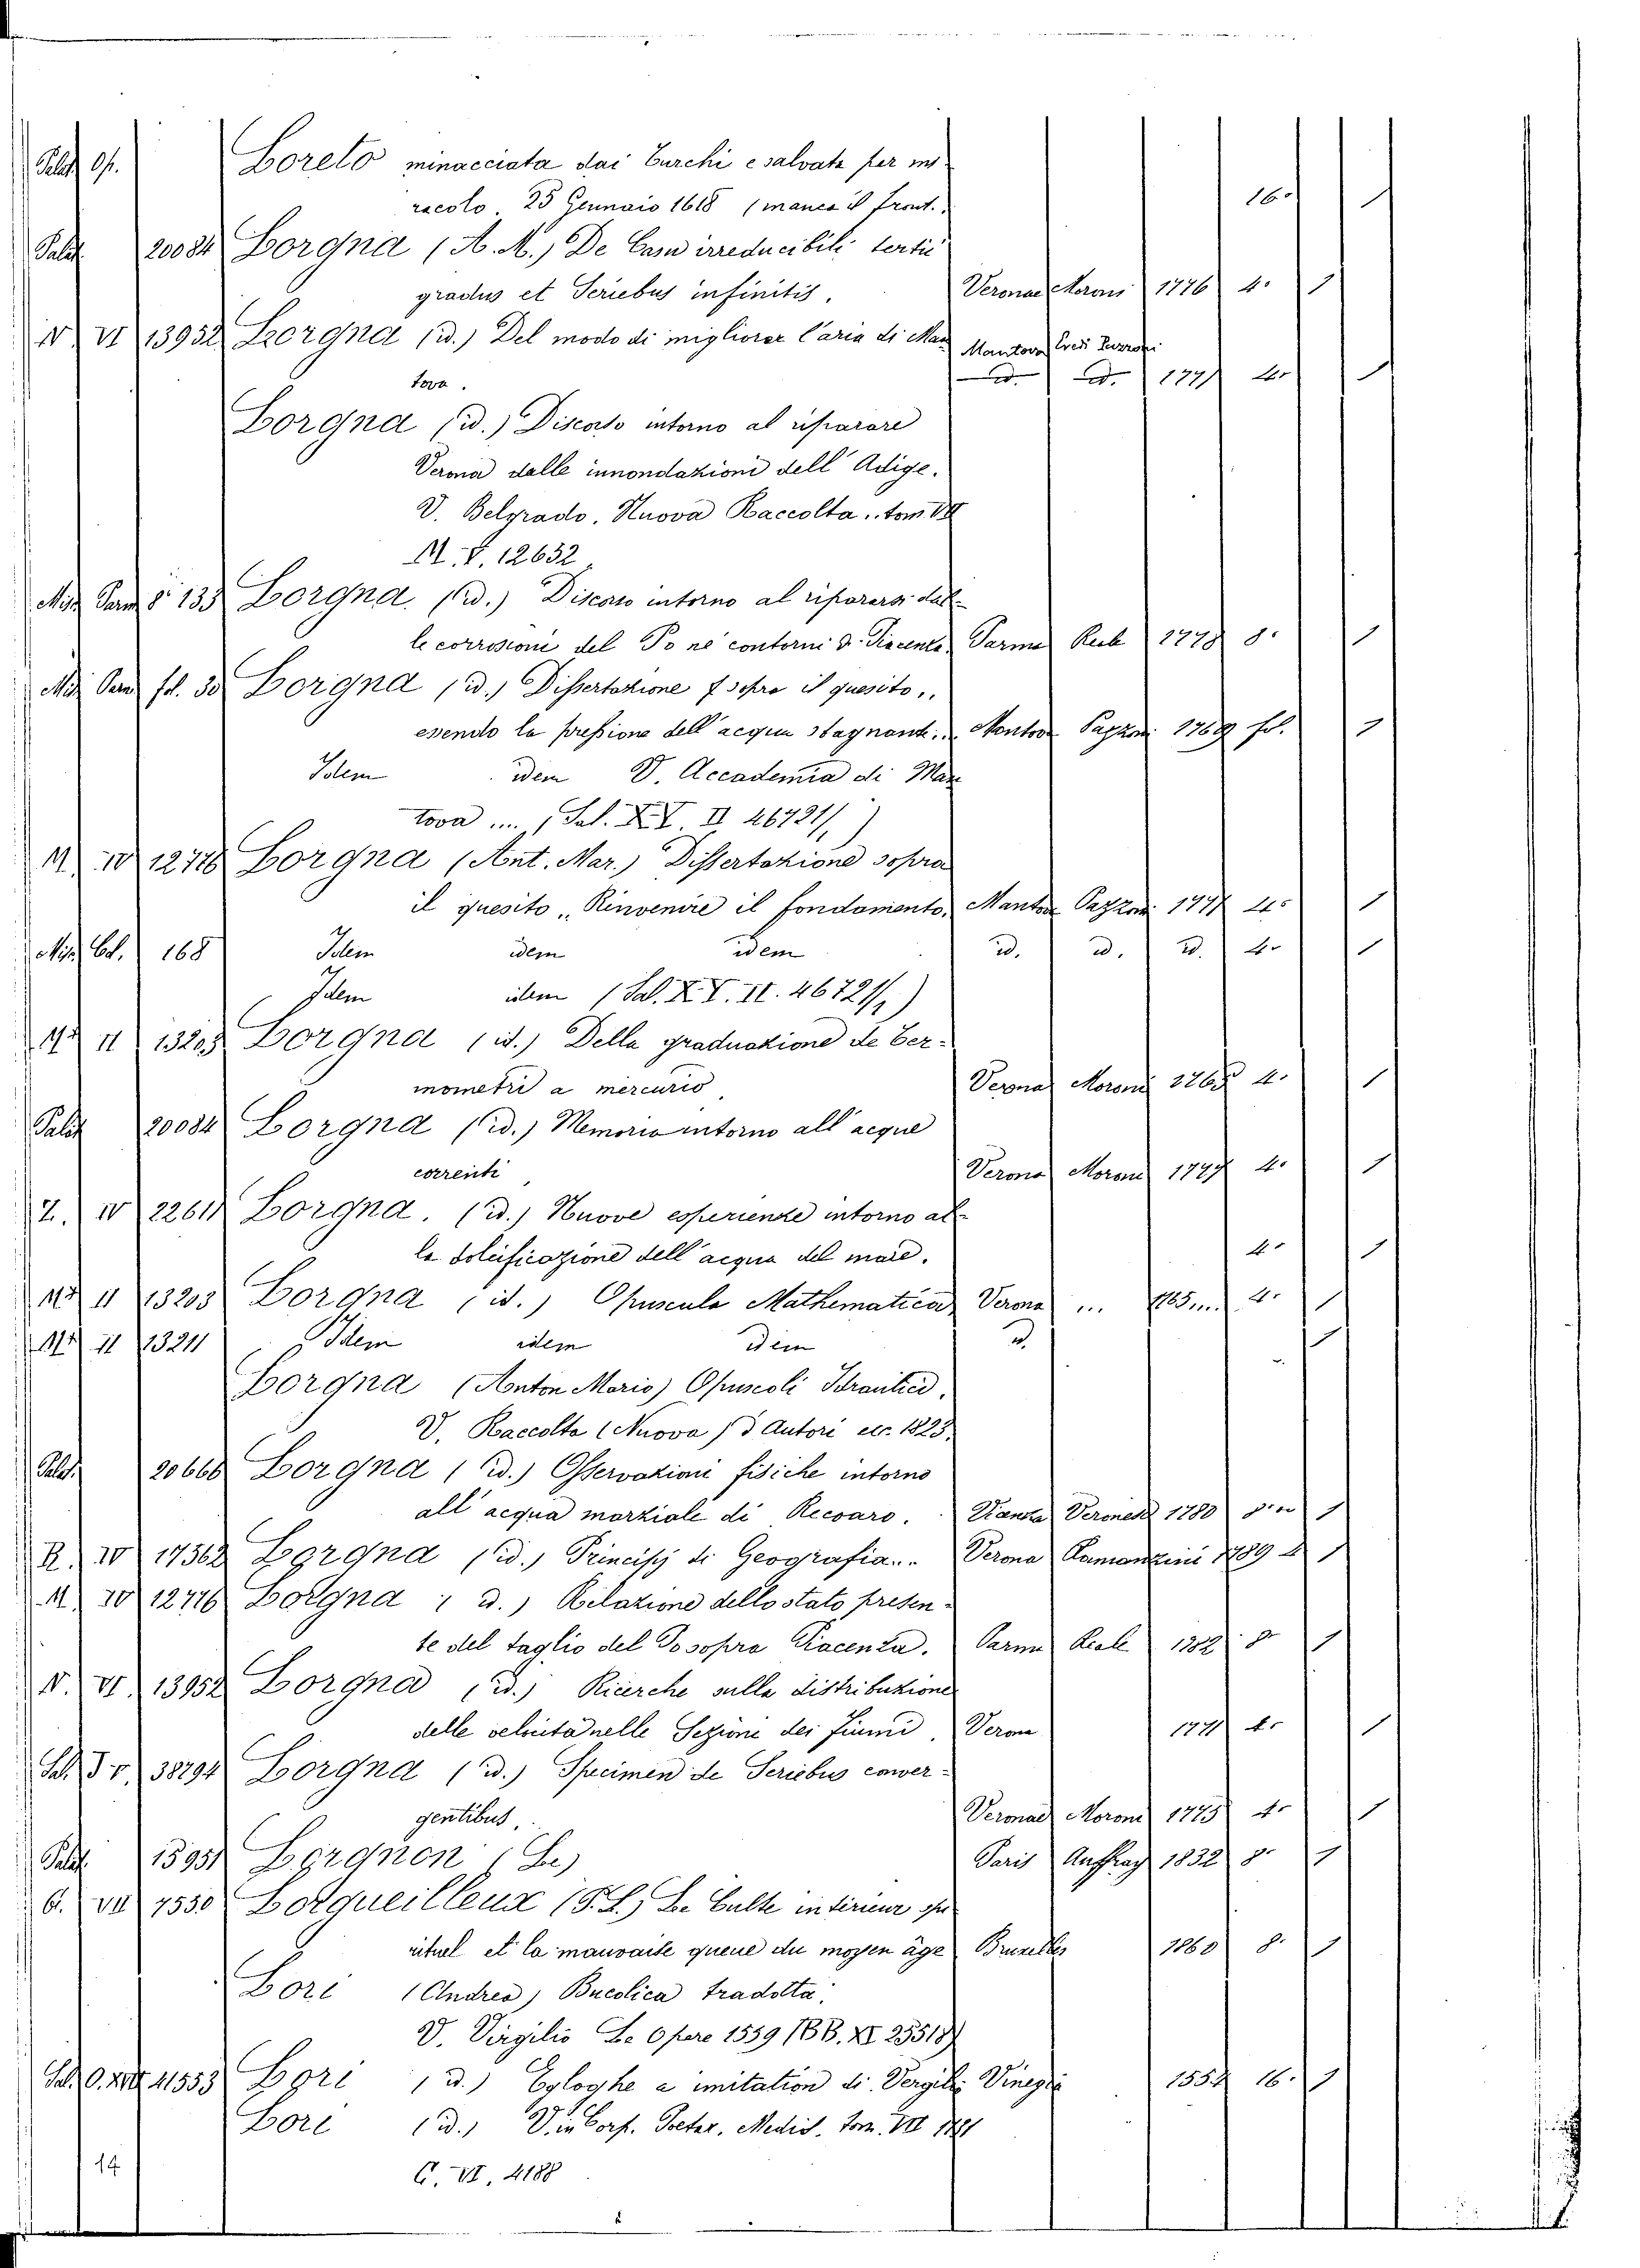 Palat Op. Loreto minacciata dai Turchi e salvata per mi-
racolo. 25 Gennaio 1618 (manca il front. 16. 1
Palat 20084 Lorgna (A. M.) De Casu irreducibili tertii
gradus et Seriebus infinitis. Veronae Moroni 1776 4. 1
N VI 13952 Lorgna (id.) Del modo di migliorar l'aria di Man Mantova Eredi Pazzoni
tova. id. id. 1771 4. 1
Lorgna (id.) Discorso intorno al riparare
Verona dalle innondazioni dell' Adige.
V. Belgrado. Nuova Raccolta.. tom. VII
M. V. 12652
Misc Parm 8° 135 Lorgna. (id.) Discorso intorno al ripararsi dal-
le corrosioni del Po ne' contorni di Piacenza Parma Reale 1778 8. 1
Misc Parm fol. 30 Lorgna (id.) Dissertazione sopra il quesito,,
essendo la pressione dell' acqua stagnante... Mantova Pazzoni 1769 fol. 1
Idem idem V. Accademia di Man
tova .... (Sal. XV. II 46721/1)
M. IV 12776 Lorgna (Ant. Mar.) Dissertazione sopra
il quesito „ Rinvenire il fondamento, Mantova Pazzoni 1777 4. 1
Misc Bl. 168 Idem idem idem id. id. id. 4. 1
Idem idem (Sal. XV. II. 46721/1)
M II 13203 Lorgna (id.) Della graduazione de Ter-
mometri a mercurio Verona Moroni 1765 4. 1
Palat 20084 Lorgna (id.) Memoria intorno all' acque
correnti Verona Moroni 1777 4. 1
Z. IV 22611 Lorgna. (id.) Nuove esperienze intorno al-
la dolcificazione dell' acqua del mare. 4. 1
M II 13203 Lorgna (id.) Opuscula Mathematica Verona ... 1765 4. 1
M II 13211 Idem idem idem id. 1
Lorgna (Anton Mario) Opuscoli Idraulici.
V. Raccolta (Nuova) d'Autori etc. 1823.
Palat. 20668 Lorgna (id.) Osservazioni fisiche intorno
all' acqua marziale di Recoaro. Veronese 1780 1
R. IV 17362 Lorgna (id.) Principj di Geografia.. Verona Ramanzini 1789 1
M. IV 12776 Lorgna (id.) Relazione dello stato presen-
te del taglio del Po sopra Piacenza. Parma Reale 1782 8. 1
N. VI 13952 Lorgna (id.) Ricerche sulla distribuzione
delle velocità nelle Sezioni dei fiumi. Verona 1771 4. 1
Sal. J V. 38794 Lorgna (id.) Specimen de Seriebus conver-
gentibus. Veronae Moroni 1775 4. 1
Palat. 15951 Lorgnon (Le) Paris Auffray 1832 8. 1
C. VII 7530 Lorgueilleux (P. L.) Le Culte intérieur spi
rituel et la mauvaise queue du moyen âge Bruxelles 1860 8. 1
Lori (Andrea) Bucolica tradotta.
V. Virgilio Le Opere 1559 (BB. XI 25518)
Sal. O. XVI 41553 Lori (id.) Egloghe a imitation di Vergilio Vinegia 1554 16. 1
Lori (id.) V. in Corp. Poetar. Mediol. tom. VII 1721
14 C. VI. 4188